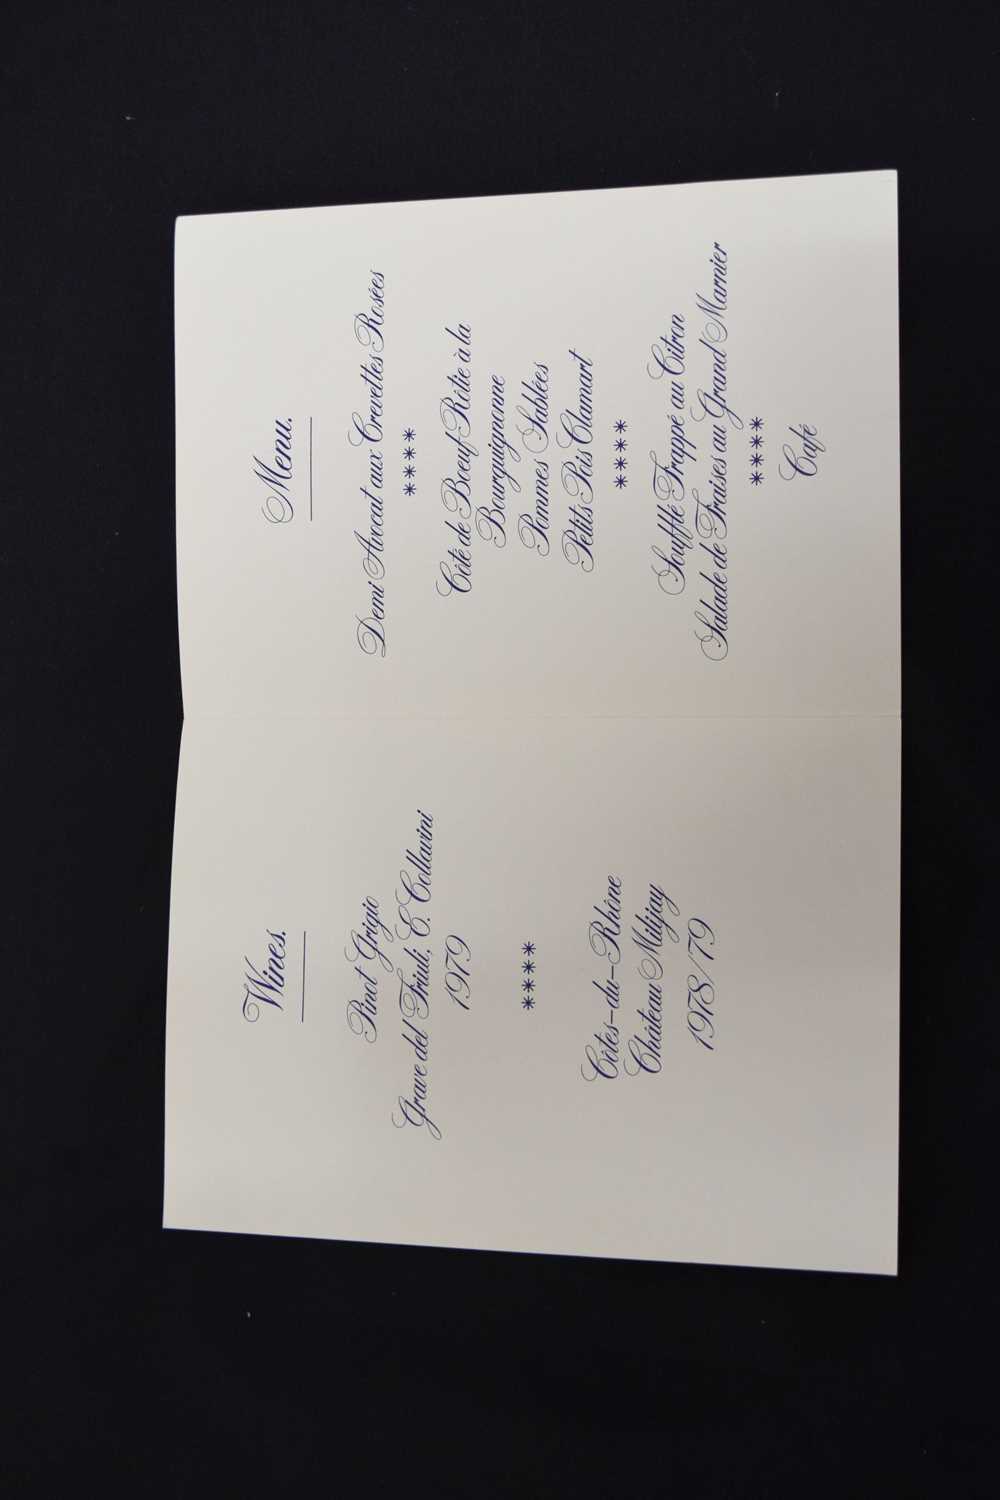 Wines.
Pinot Grigio
Grave del Friuli, E. Collavini
1979
****
Côtes-du-Rhône
Château Milijay
1978/79
Menu.
Demi Avocat aux Crevettes Rosées
****
Côté de Boeuf Rôtie à la
Bourguignonne
Pommes Sablées
Petits Pois Clamart
****
Soufflé Frappé au Citron
Salade de Fraises au Grand Marnier
****
Café